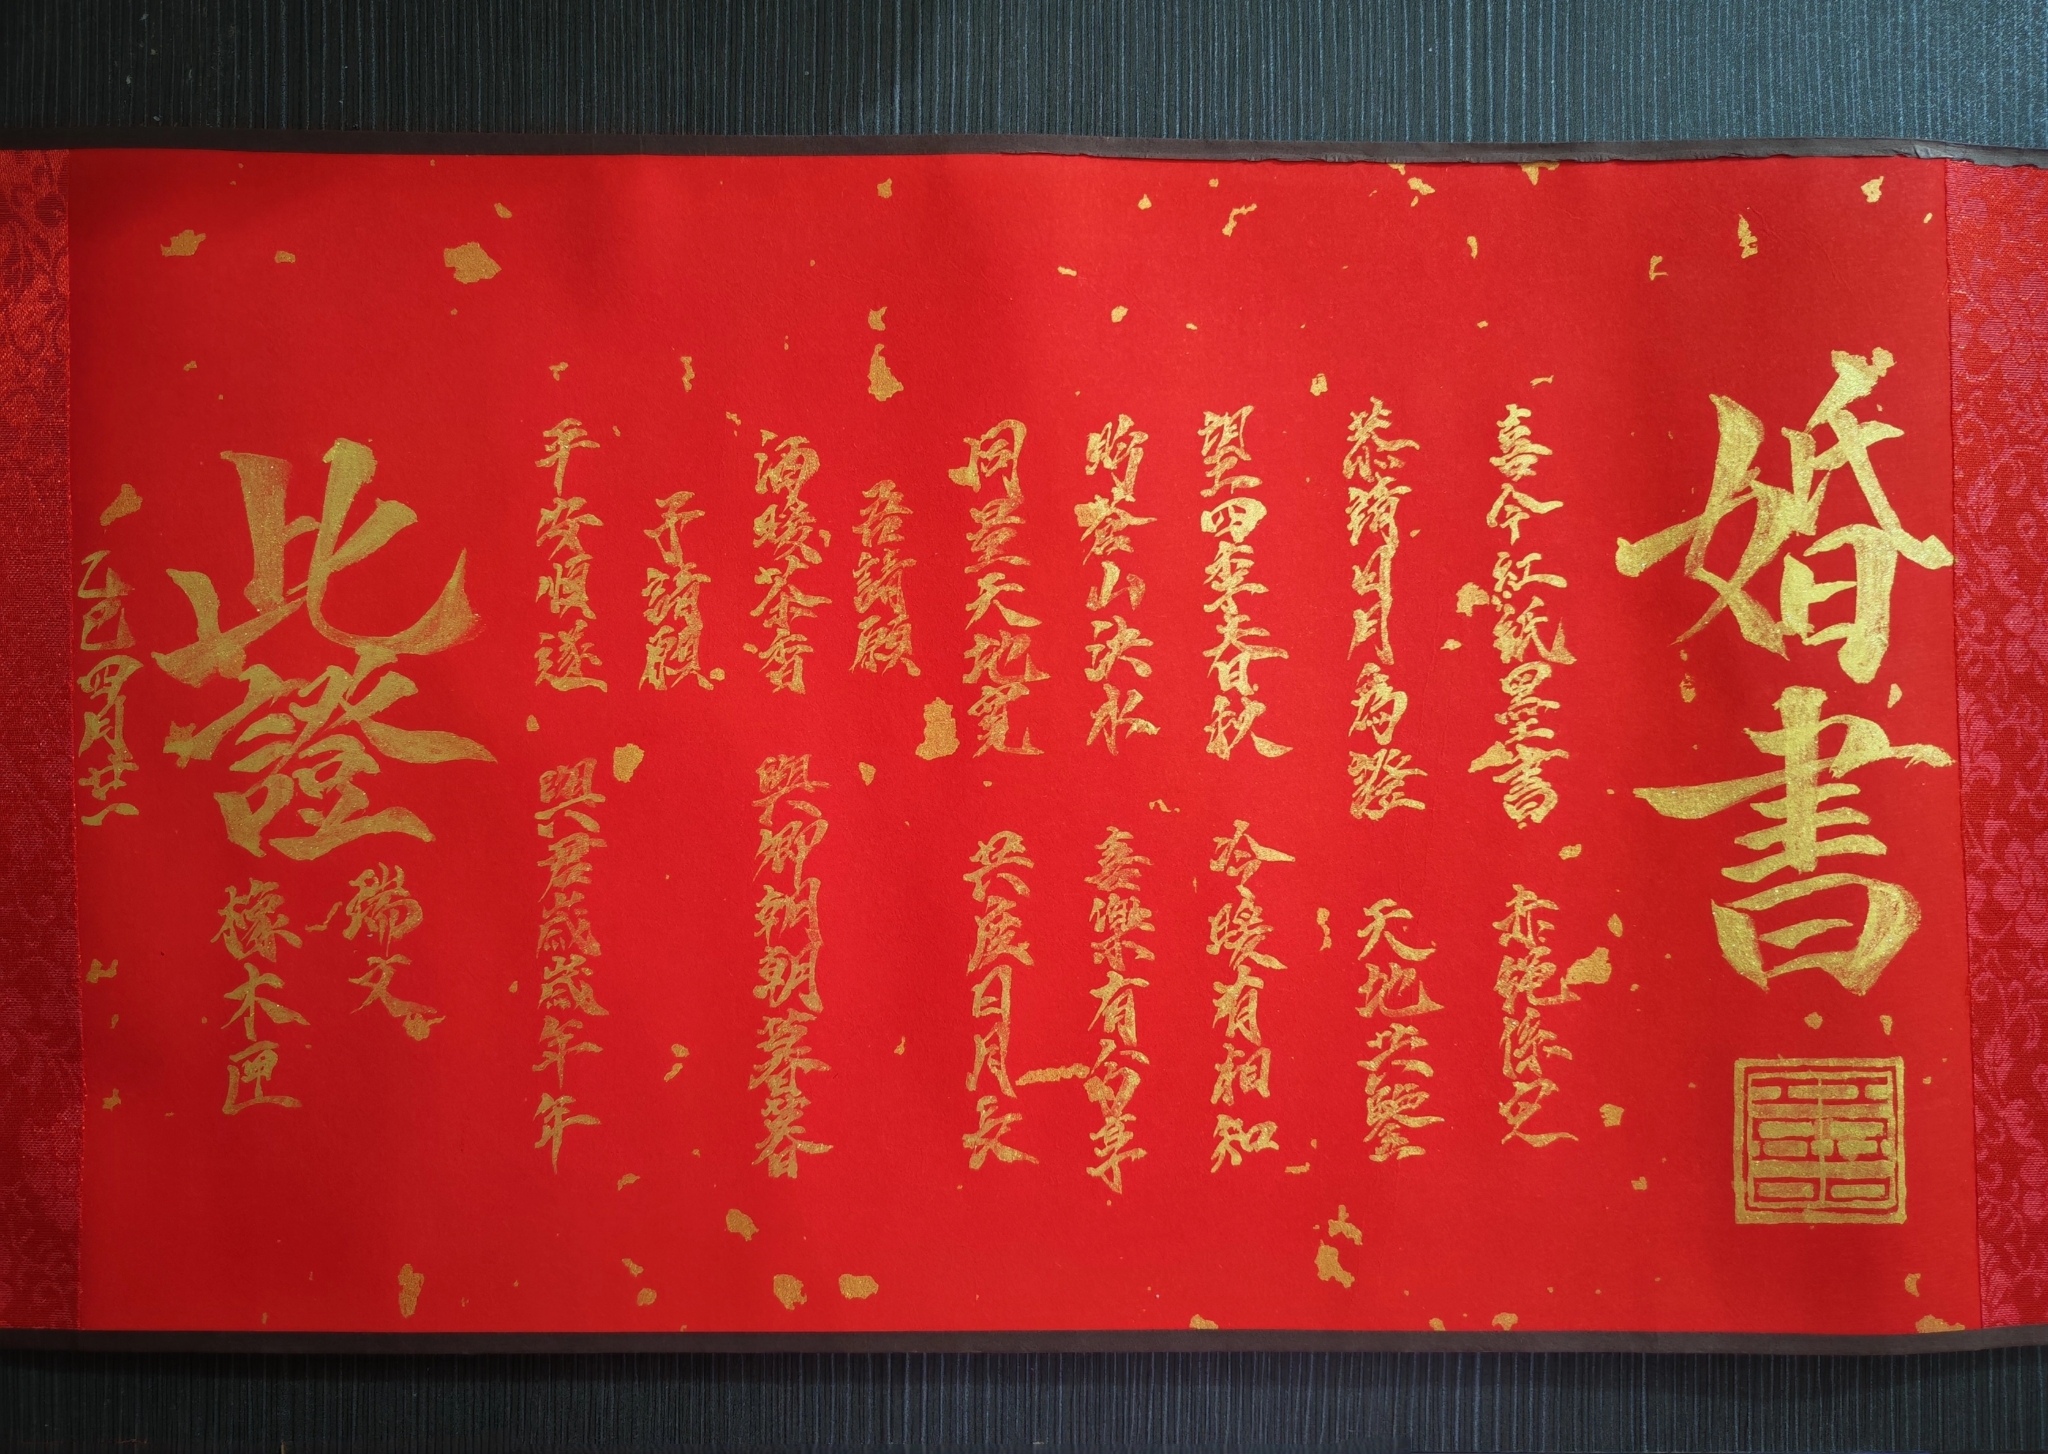 婚書
喜今紅紙墨書 赤繩係定
恭請日月為證 天地共鑒
望四季春秋 冷暖有相知
盼蒼山決水 喜樂有分享
同量天地寬 共度日月長
吾請願
酒暖茶香 與卿朝朝暮暮
予請願
平安順遂 與君歲歲年年
此證
瑞文
橡木匣
乙巳四月廿八